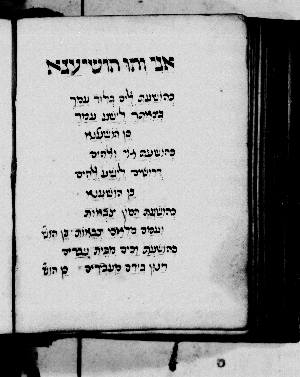 אני והו הושיענא
כהושעת אלים בלוד עמך
בצאתך לישע עמך
כן הושענא
כהושעת גוי ואלהים
דרושים לישע אלהים
כן הושענא
כהושעת המון צבאות
ועמם מלאכי צבאות כן הוש
כהושעת זכים מבית עבדים
חנון בידם מעבידים כן הוש